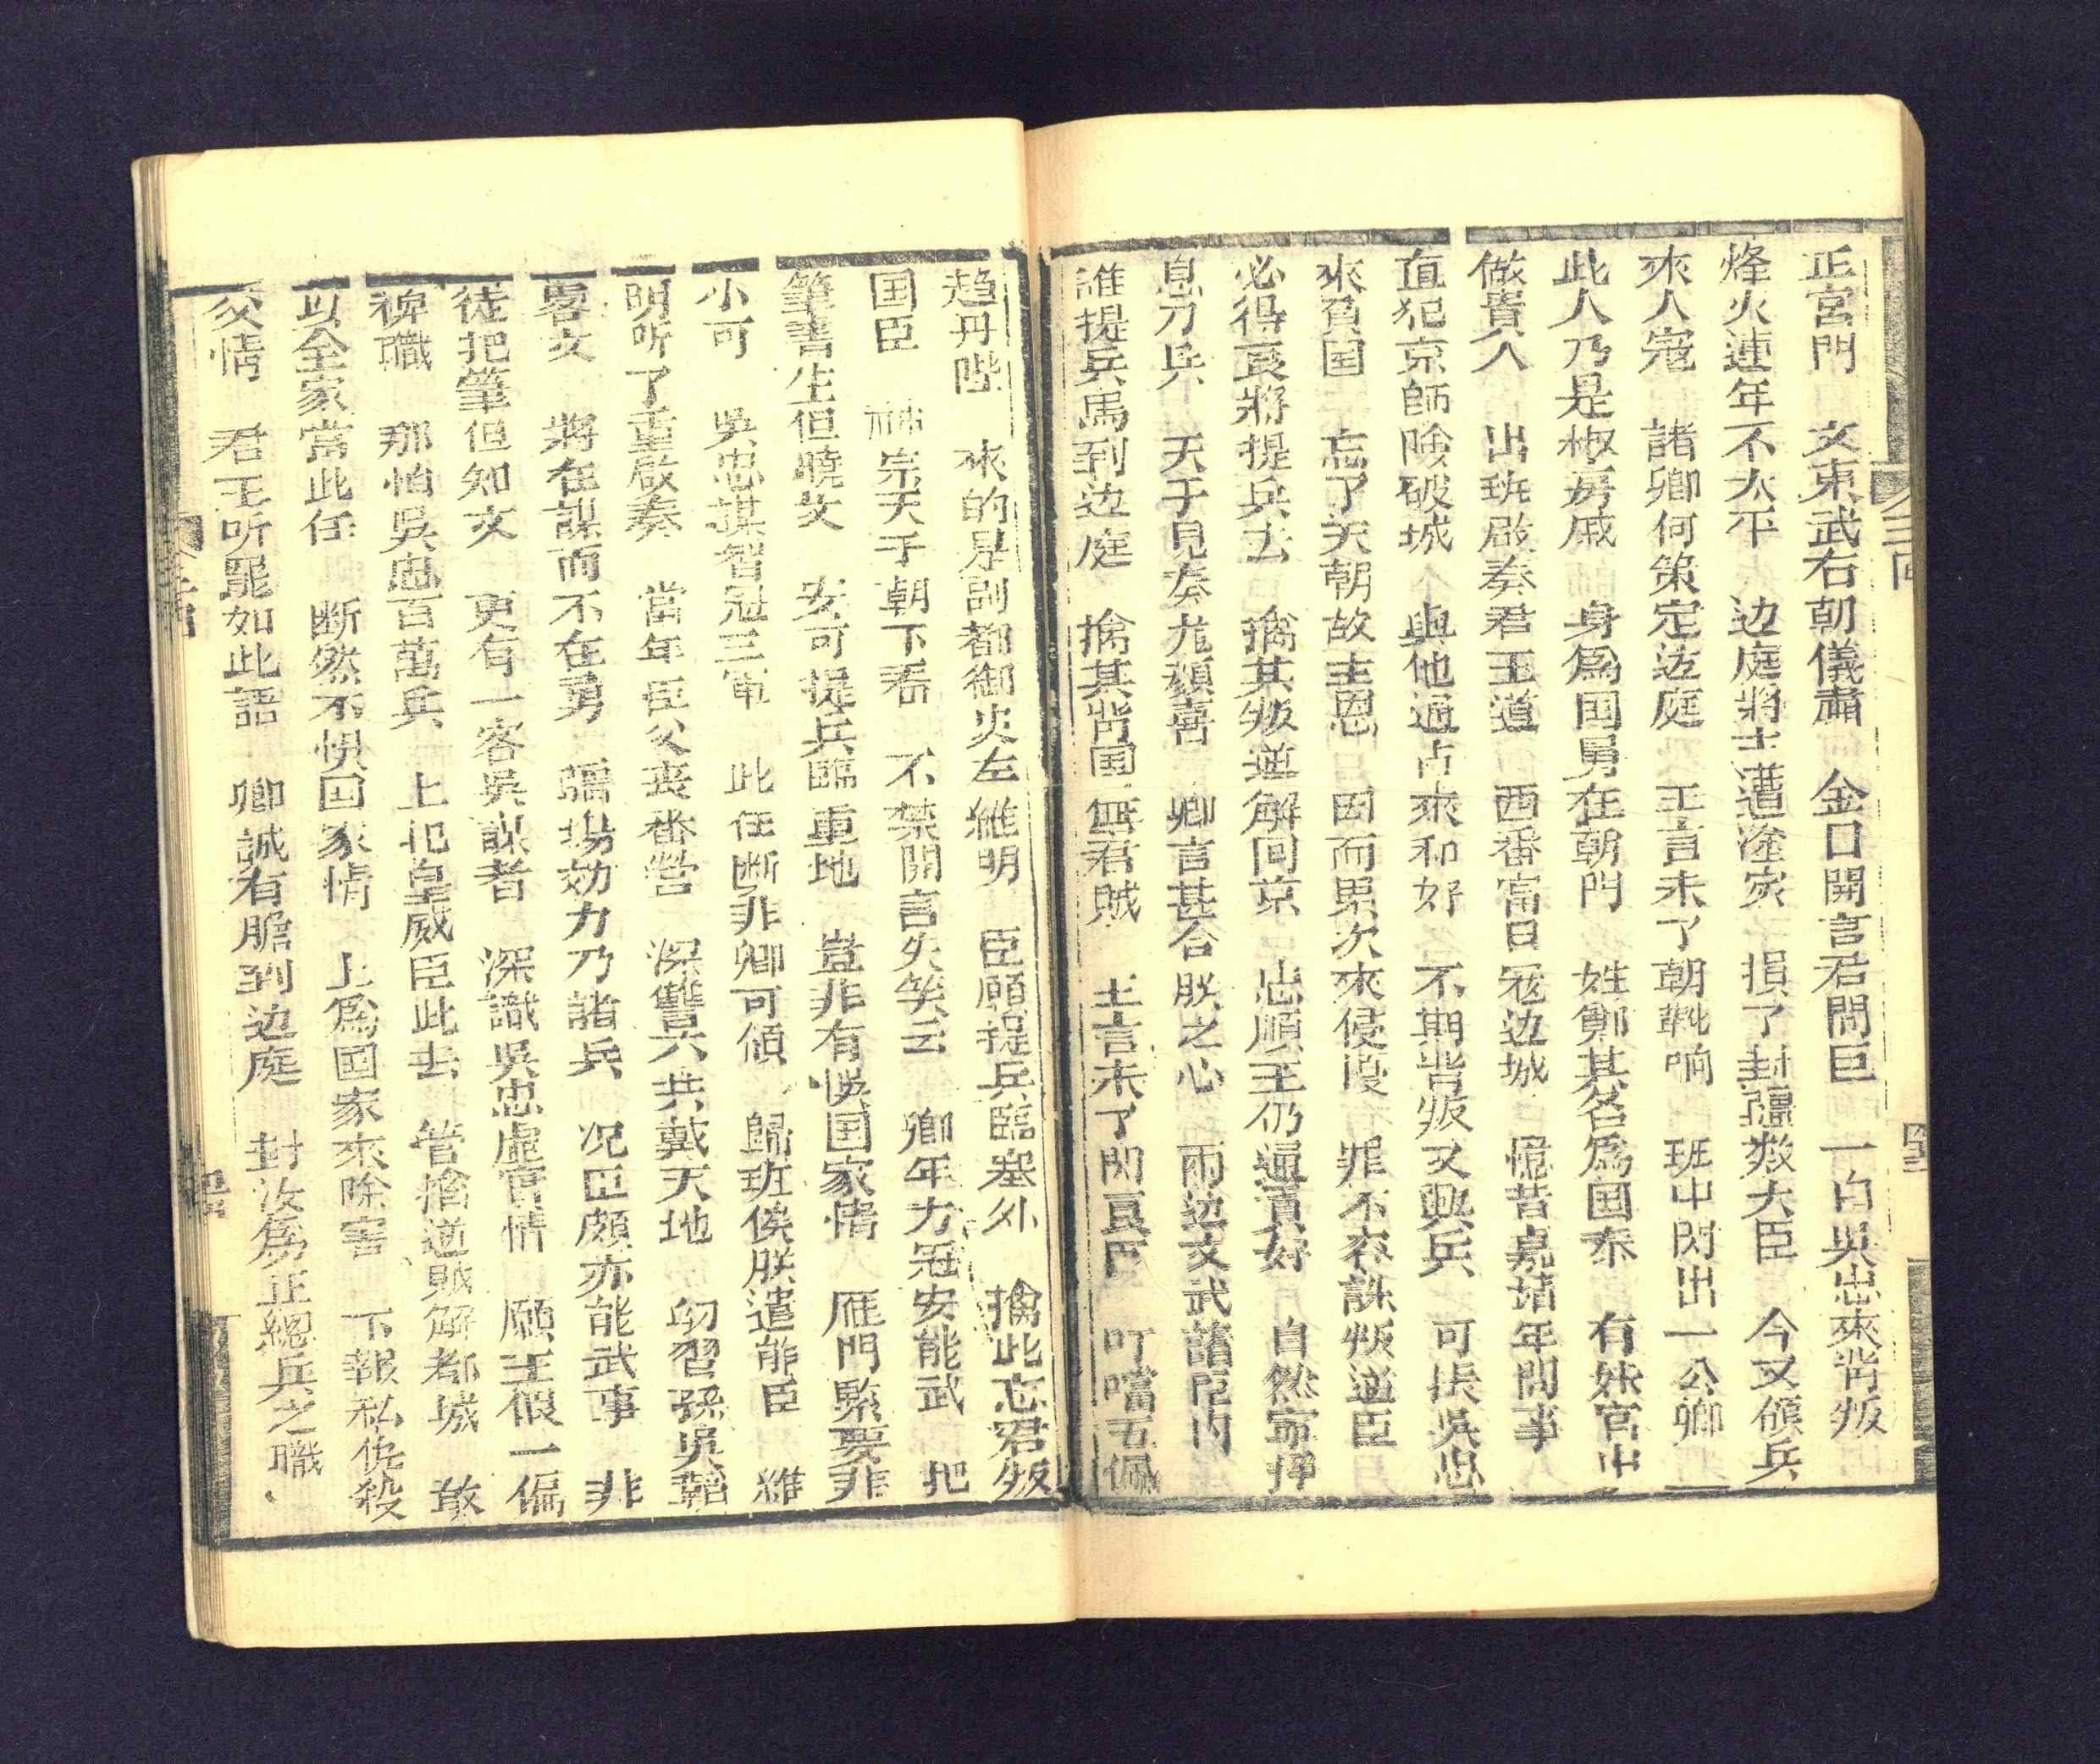 正宮門　文東武右朝儀肅　金口開言君問臣　一自吳忠來背叛
烽火連年不太平　边庭將士遭塗炭　損了封疆数大臣　今又領兵
來入寇　諸卿何策定边庭　王言未了朝靴响　班中閃出一公卿
此人乃是椒房戚　身為国舅在朝門　姓鄭其名為国泰　有妹宮中
做貴人　出班啟奏君王道　西番當日冦边城　憶昔嘉靖年間事
直犯京師險破城　與他通占來和好　不期背叛又興兵　可恨吳忠
來負国　忘了天朝故主恩　因而累次來侵擾　罪不容誅叛逆臣
必得良將提兵去　擒其叛逆解回京　忠順王仍通貢好　自然寜靜
息刀兵　天子見奏龙顏喜　卿言甚合朕之心　両边文武諸臣内
誰提兵馬到边庭　擒其背国無君賊　王言未了閃良臣　叮噹玉佩
趋丹陛　來的是副都御史左維明　臣願提兵臨塞外　擒此忘君叛
国臣　神宗天子朝下看　不禁開言失笑云　卿年方冠安能武　把
筆書生但曉文　安可提兵臨重地　豈非有悞国家情　雁門緊要非
小可　吳忠謀智冠三軍　此任断非卿可領　歸班俟朕遣能臣　維
明听了重啟奏　當年臣父丧番營　深讐不共戴天地　幼習孫吳韜
畧文　將在謀而不在勇　疆場効力乃諸兵　况臣頗亦能武事　非
徒把筆但知文　更有一客吳謀者　深識吳忠虛實情　願王假一偏
裨職　那怕吳忠百萬兵　上托皇威臣此去　管擒逆賊解都城　敢
以全家當此任　断然不悞国家情　上為国家來除害　下報私仇殺
父情　君王听罷如此語　卿誠有膽到边庭　封汝為正總兵之職